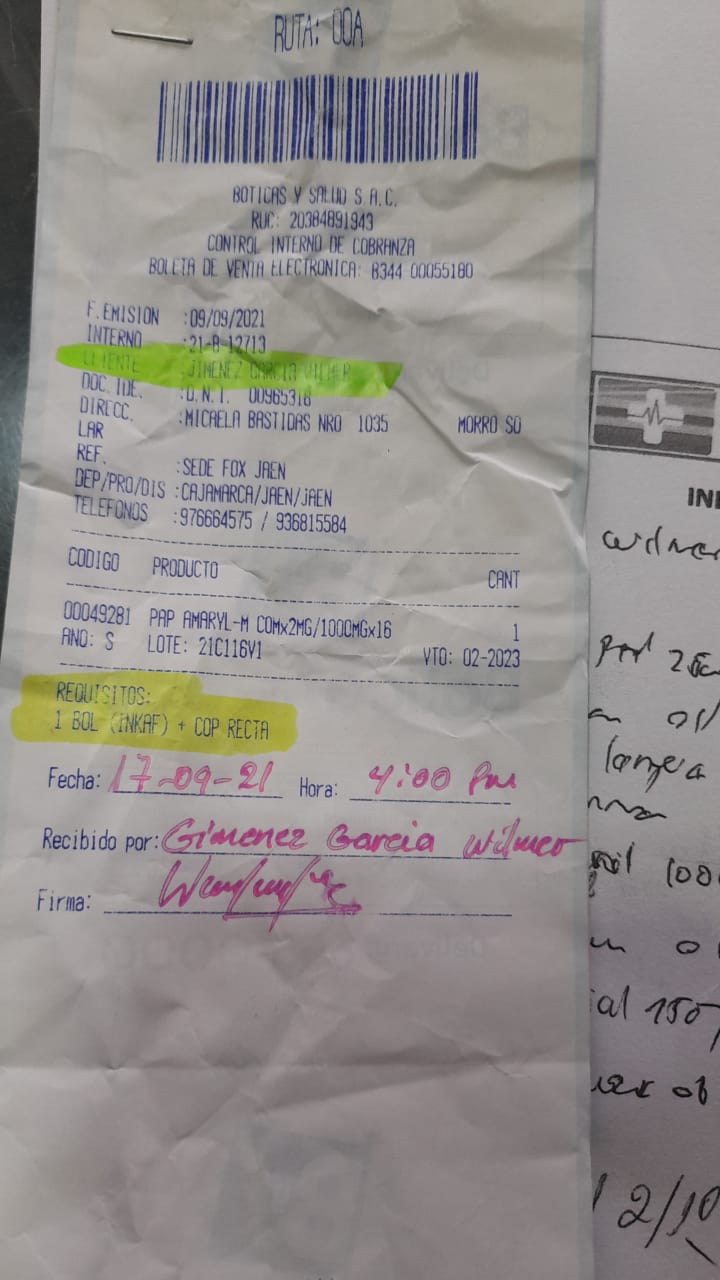 RUTA: 00A
BOTICAS Y SALUD S.A.C.
RUC: 20384891943
CONTROL INTERNO DE COBRANZA
BOLETA DE VENTA ELECTRONICA: B344 00055180
F.EMISION :09/09/2021
INTERNO :21-B-12713
CLIENTE :JIMENEZ GARCIA VILMER
DOC. IDE. :D.N.I. 00965318
DIRECC. :MICAELA BASTIDAS NRO 1035 MORRO SO
LAR
REF. :SEDE FOX JAEN
DEP/PRO/DIS :CAJAMARCA/JAEN/JAEN
TELEFONOS :976664575 / 936815584
CODIGO PRODUCTO CANT
00049281 PAP AMARYL-M COMx2MG/1000MGx16 1
ANO: S LOTE: 21C116V1 VTO: 02-2023
REQUISITOS:
1 BOL (INKAF) + COP RECTA
Fecha: 17-09-21 Hora: 4:00 Pm
Recibido por: Gimenez Garcia Wilmer
Firma:
INF
wilmer
2/10